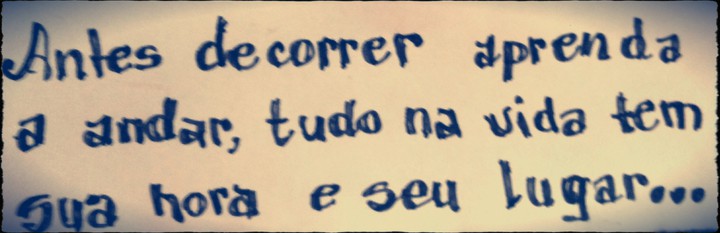 Antes de correr aprenda
a andar, tudo na vida tem
sua hora e seu lugar...